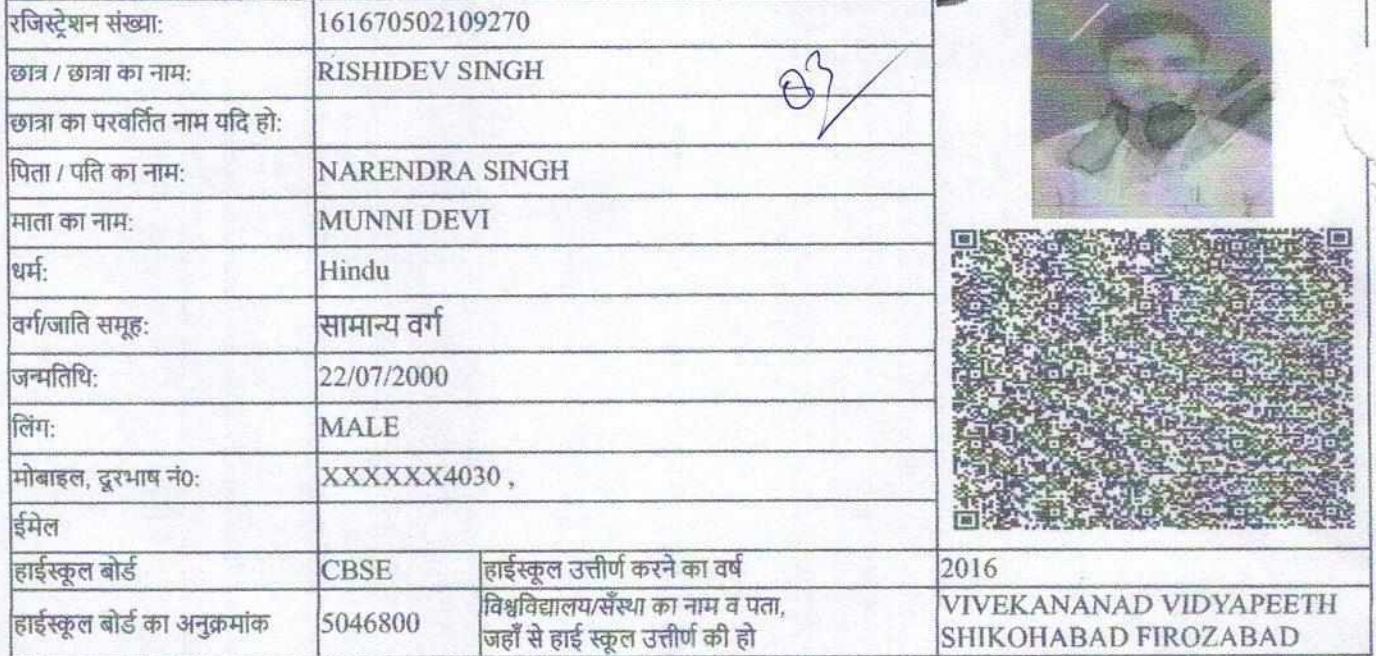 रजिस्ट्रेशन संख्या: 161670502109270
छात्र / छात्रा का नाम: RISHIDEV SINGH
03
छात्रा का परवर्तित नाम यदि हो:
पिता / पति का नाम: NARENDRA SINGH
माता का नाम: MUNNI DEVI
धर्म: Hindu
वर्ग/जाति समूह: सामान्य वर्ग
जन्मतिथि: 22/07/2000
लिंग: MALE
मोबाइल, दूरभाष नं0: XXXXXX4030 ,
ईमेल
हाईस्कूल बोर्ड CBSE हाईस्कूल उत्तीर्ण करने का वर्ष 2016
हाईस्कूल बोर्ड का अनुक्रमांक 5046800 विश्वविद्यालय/सँस्था का नाम व पता, जहाँ से हाई स्कूल उत्तीर्ण की हो VIVEKANANAD VIDYAPEETH SHIKOHABAD FIROZABAD